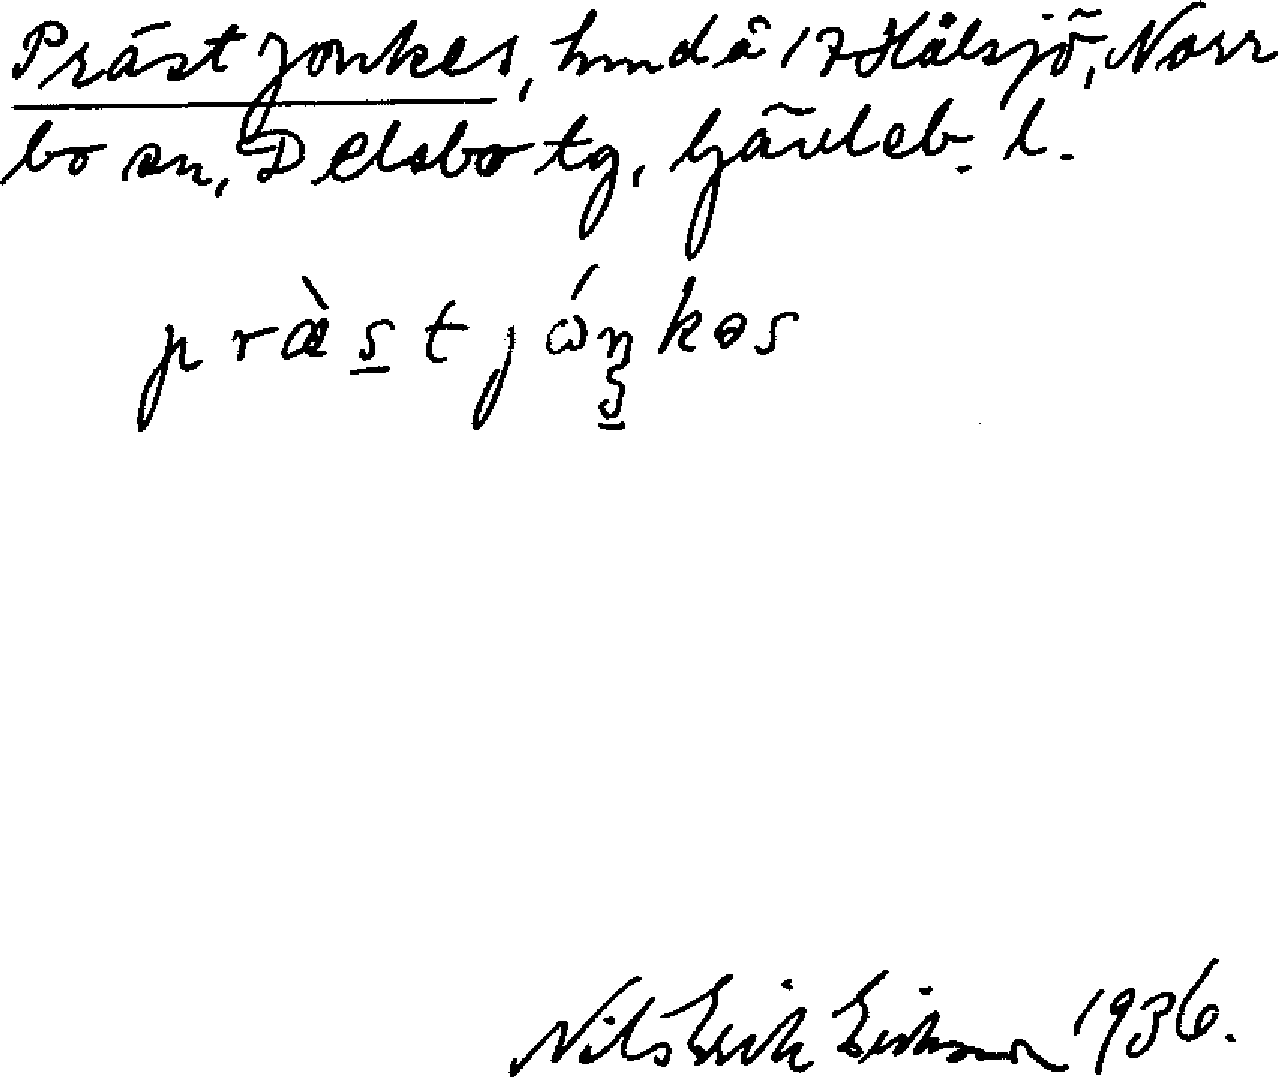 Prästjonkes, hmd å 17 Hålsjö, Norr
bo sn, Delsbo tg, Gävleb. l.
præ̀stjóŋkəs
Nils Erik Erikson 1936.